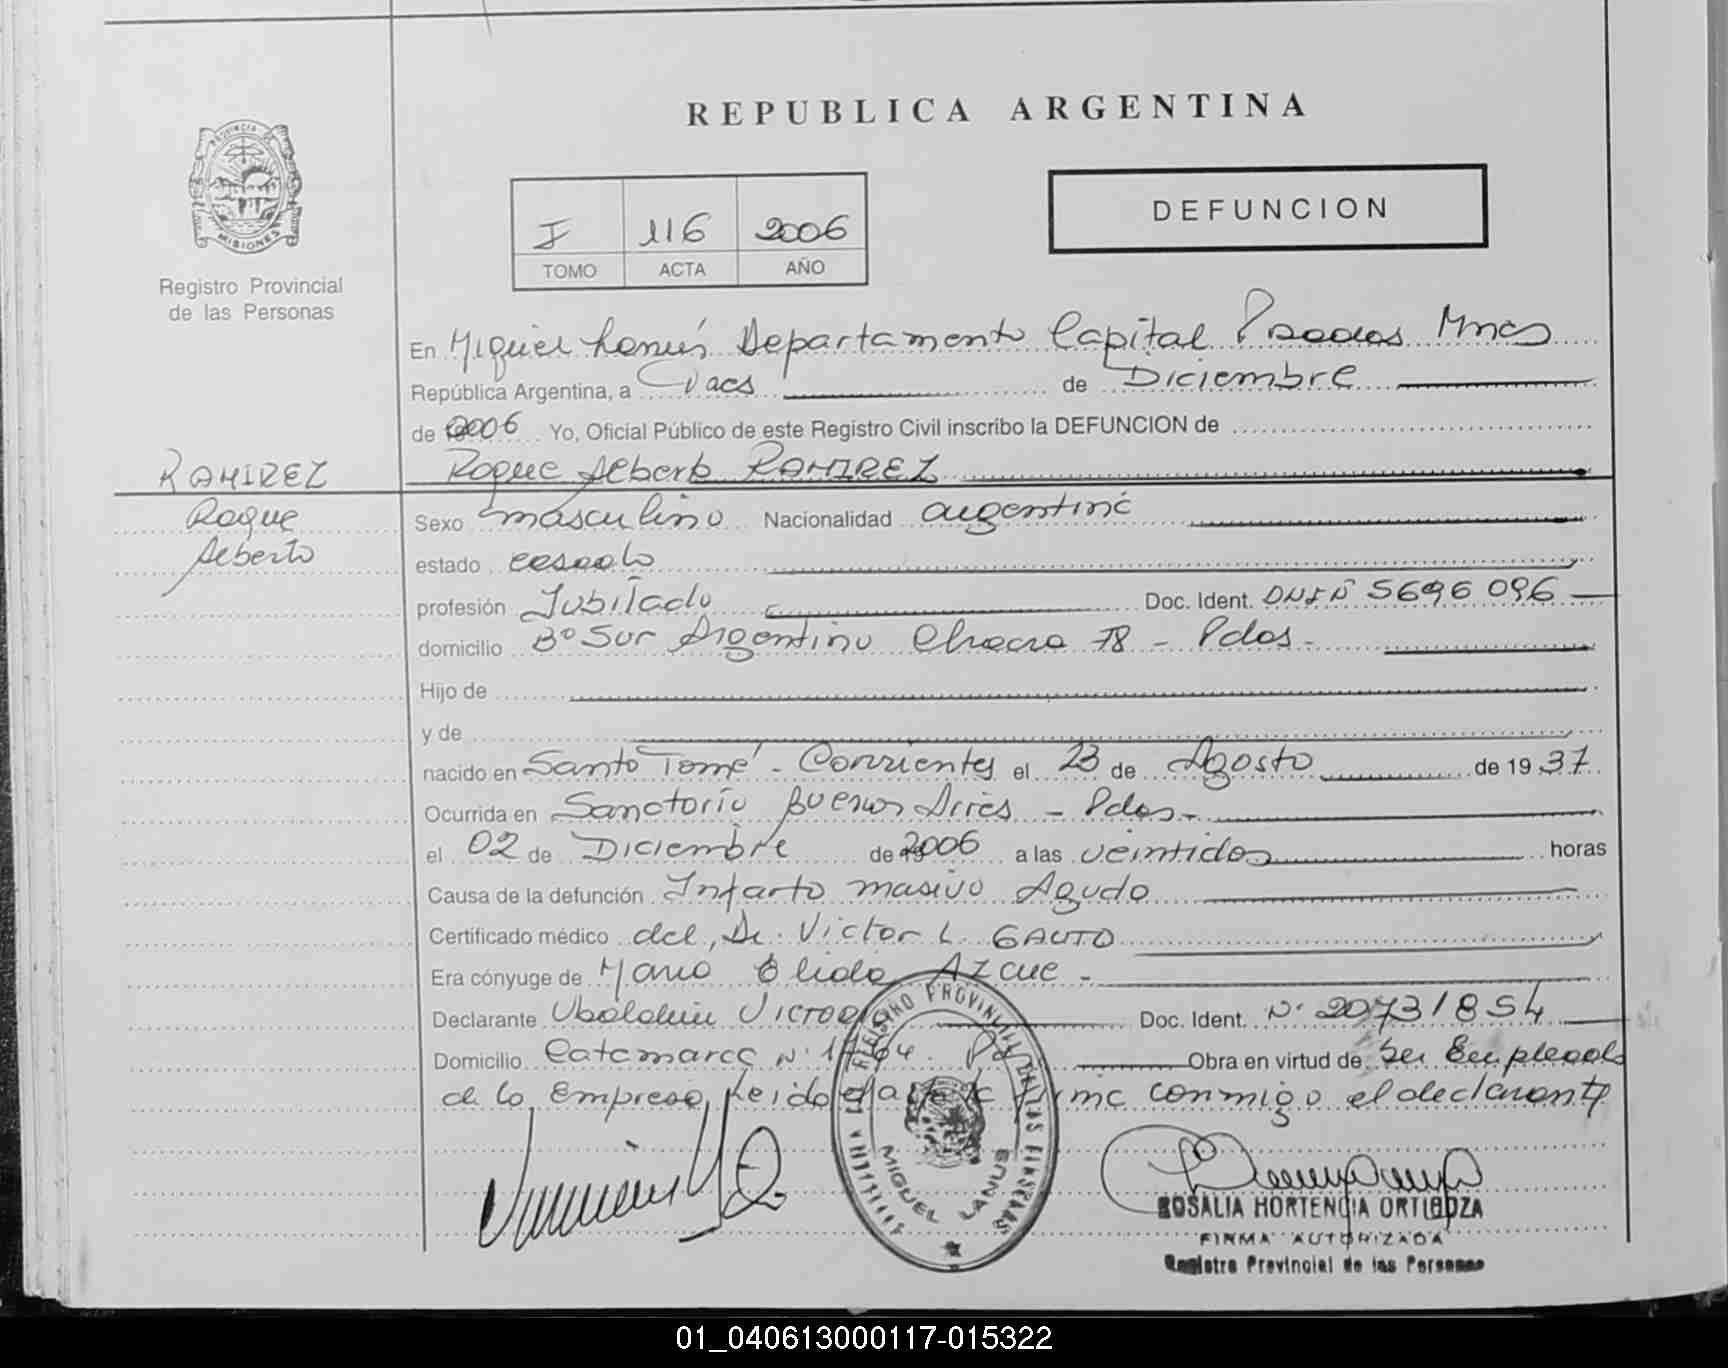 REPUBLICA ARGENTINA
PROVINCIA DE MISIONES
Registro Provincial
de las Personas
I 116 2006
TOMO ACTA AÑO
DEFUNCION
En Miguel Lanús Departamento Capital Posadas Mnes
República Argentina, a de Diciembre
de 2006 Yo, Oficial Público de este Registro Civil inscribo la DEFUNCION de
Roque Alberto RAMIREZ
RAMIREZ
Roque
Alberto
Sexo masculino Nacionalidad argentina
estado casado
profesión Jubilado Doc. Ident. DNI Nº 5696096
domicilio Bº Sur Argentino Chacra 78 - Pdas -
Hijo de
y de
nacido en Santo Tomé - Corrientes el 23 de Agosto de 19 37
Ocurrida en Sanatorio Buenos Aires - Pdas -
el 02 de Diciembre de 2006 a las veintidos horas
Causa de la defunción Infarto masivo Agudo
Certificado médico del, Dr. Victor L. GAUTO
Era cónyuge de Maria Elida AZCUE -
Declarante Ubaldino Doc. Ident. Nº 20731854
Domicilio Catamarca Nº Obra en virtud de Ser Empleado
de la Empresa, Leida el acta la firma conmigo el declarante
REGISTRO PROVINCIAL DE LAS PERSONAS
MIGUEL LANUS
ROSALIA HORTENCIA ORTIGOZA
FIRMA AUTORIZADA
Registro Provincial de las Personas
01_040613000117-015322